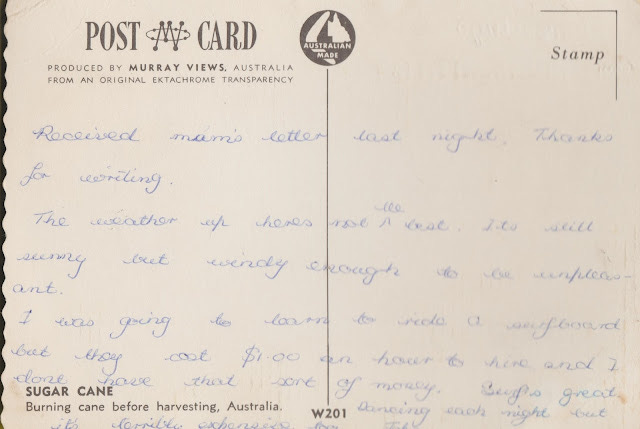 POST CARD
AUSTRALIAN MADE
PRODUCED BY MURRAY VIEWS, AUSTRALIA
FROM AN ORIGINAL EKTACHROME TRANSPARENCY
Stamp
Received mum's letter last night. Thanks
for writing.
The weather up heres not the best. Its still
sunny but windy enough to be unpleas-
ant.
I was going to learn to ride a surfboard
but they cost $1.00 an hour to hire and I
dont have that sort of money. Surf's great
SUGAR CANE
Burning cane before harvesting, Australia.
W201
Dancing each night but
its terribly expensive